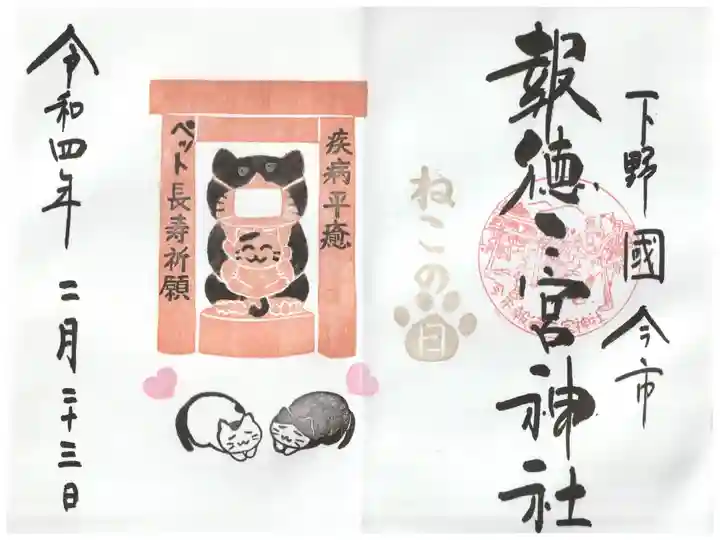 下野國今市
報徳二宮神社
ねこの日
疾病平癒
ペット長寿祈願
令和四年 二月二十三日